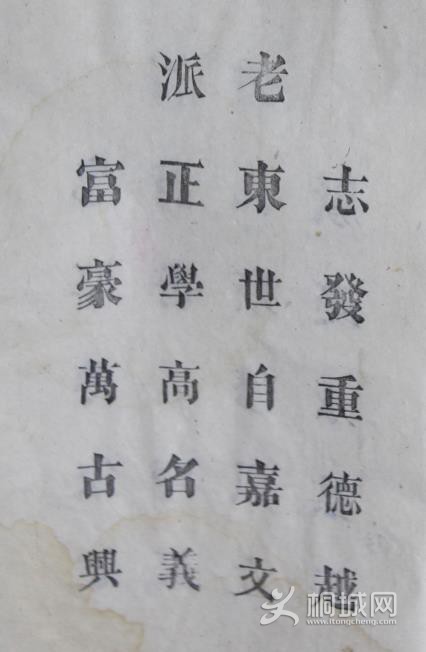 志發重德越
老東世自嘉文
派正學高名義
富豪萬古興
桐城网
www.itongcheng.com